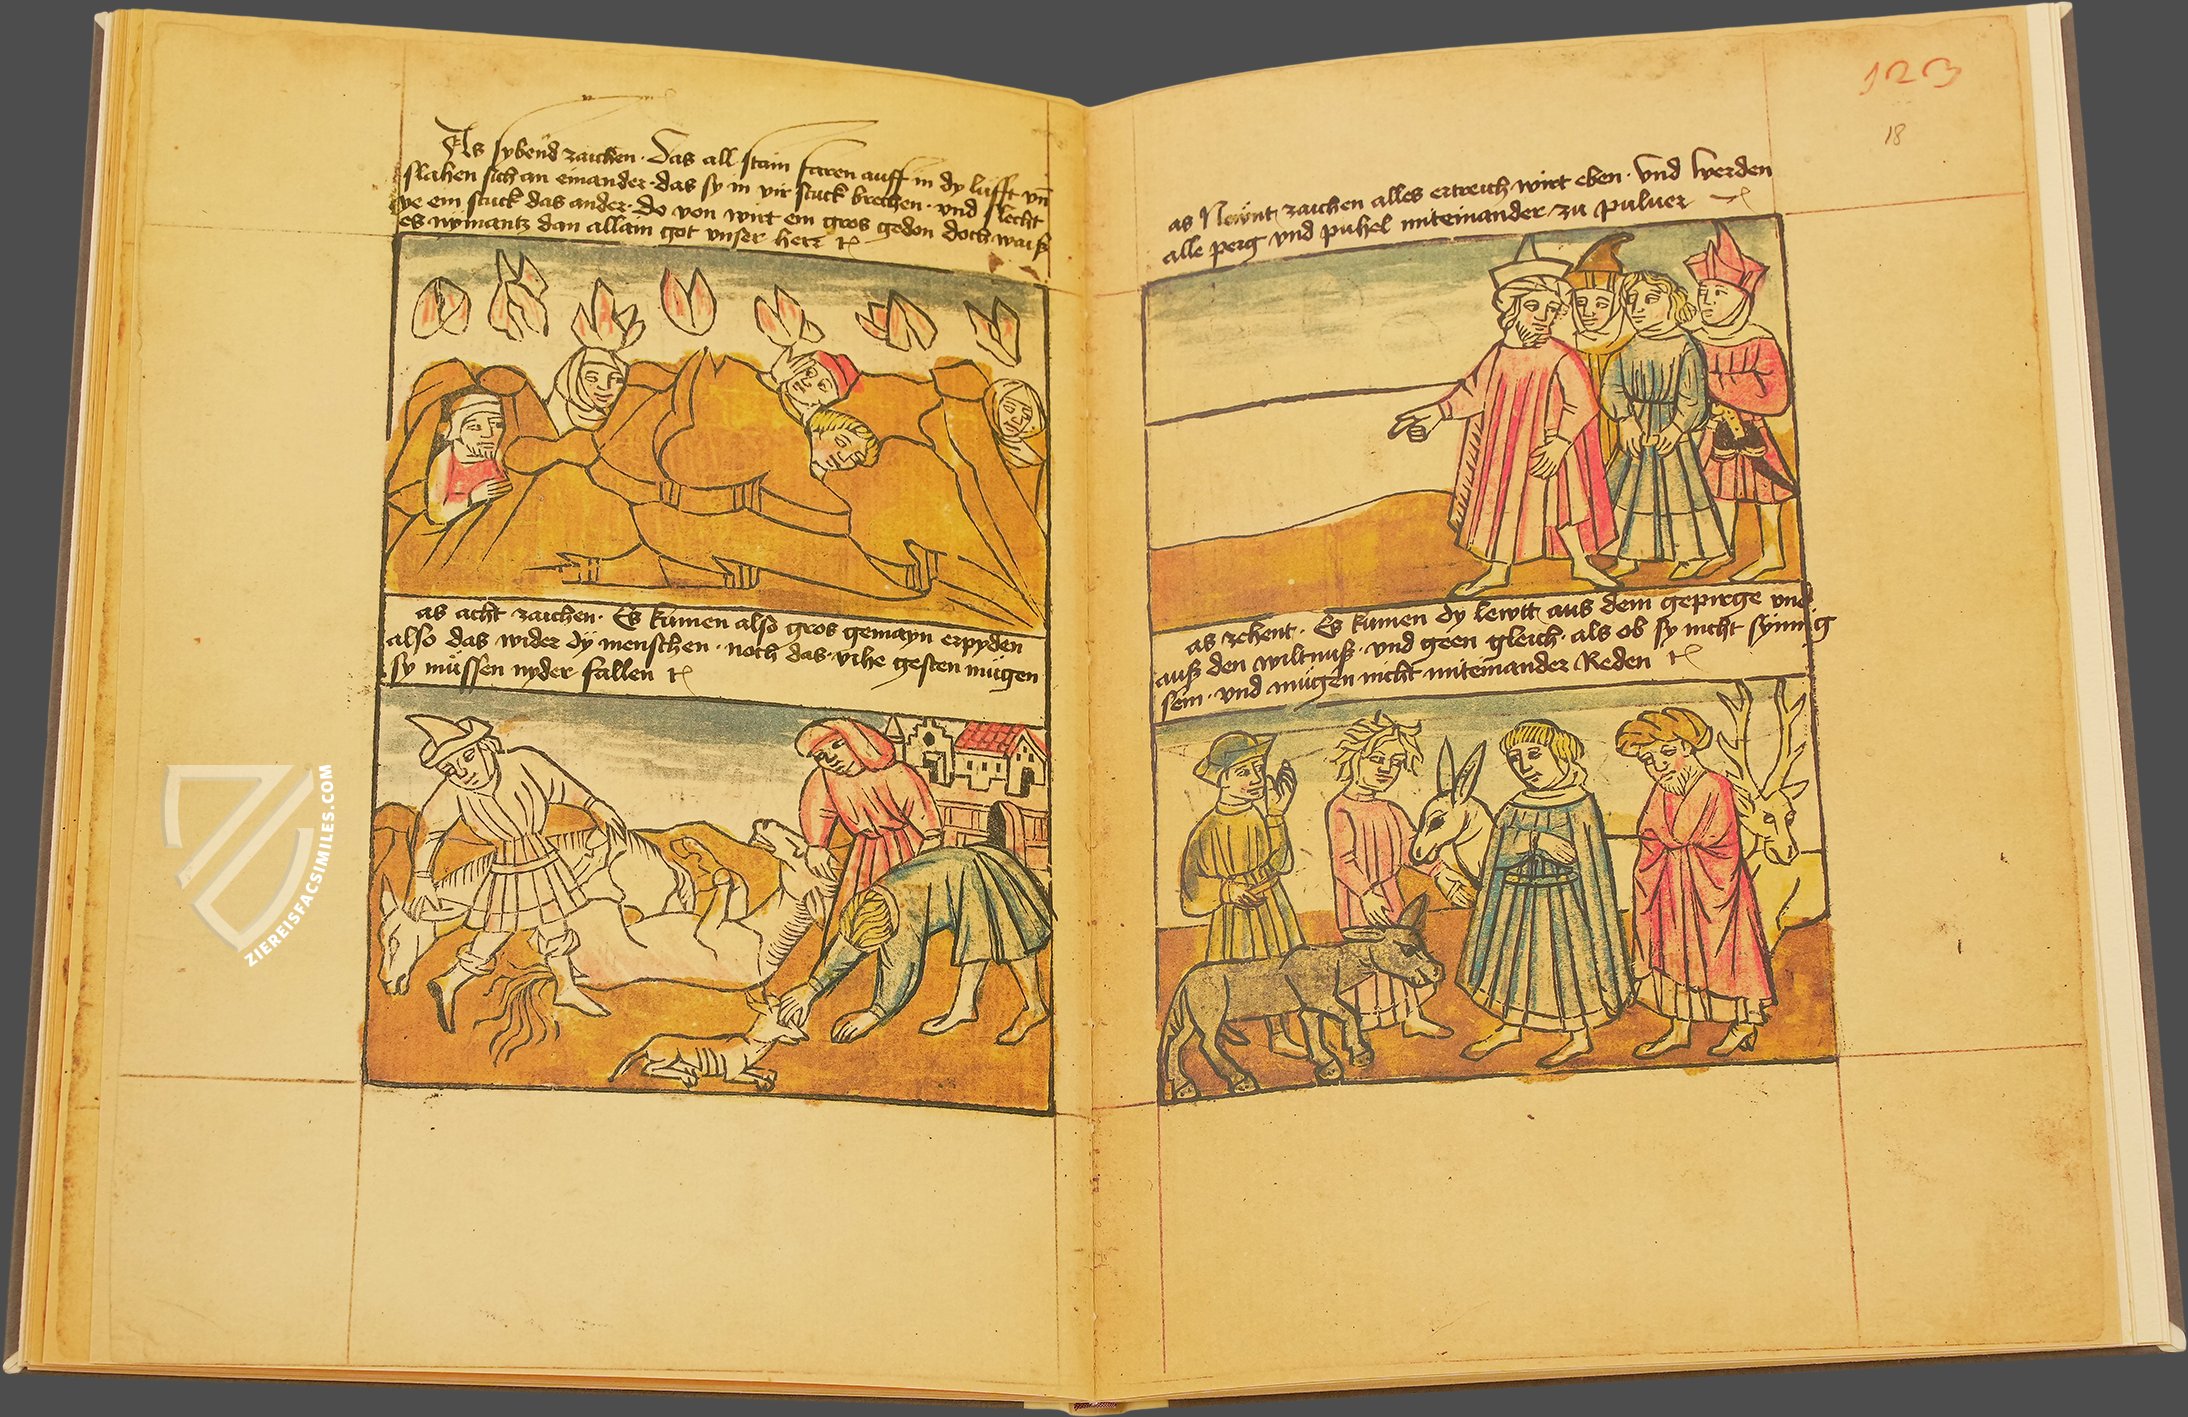 As sybend zaichen · Das all stain faren auff in dy lüfft vn̄
slahen sich an einander · das sy in vir stuck brechen · vnd slecht
ye ein stuck das ander · Do von wirt ein gros gedon doch waiß
es nymantz dan allain got vnser herr
as acht zaichen · Es kumen also gros gemayn erpyden
also das wider dy menschen · noch das vihe gesten mügen
sy müssen nyder fallen
123
18
as Newnt zaichen alles ertreich wirt eben · Vnd werden
alle perg vnd puhel miteinander zu puluer
as zehent · Es kumen dy lewtt aus dem gepirge vnd
auß den wiltnuß · vnd geen gleich · als ob sy nicht synnig
sein · vnd mügen nicht miteinander Reden
ZIEREISFACSIMILES.COM